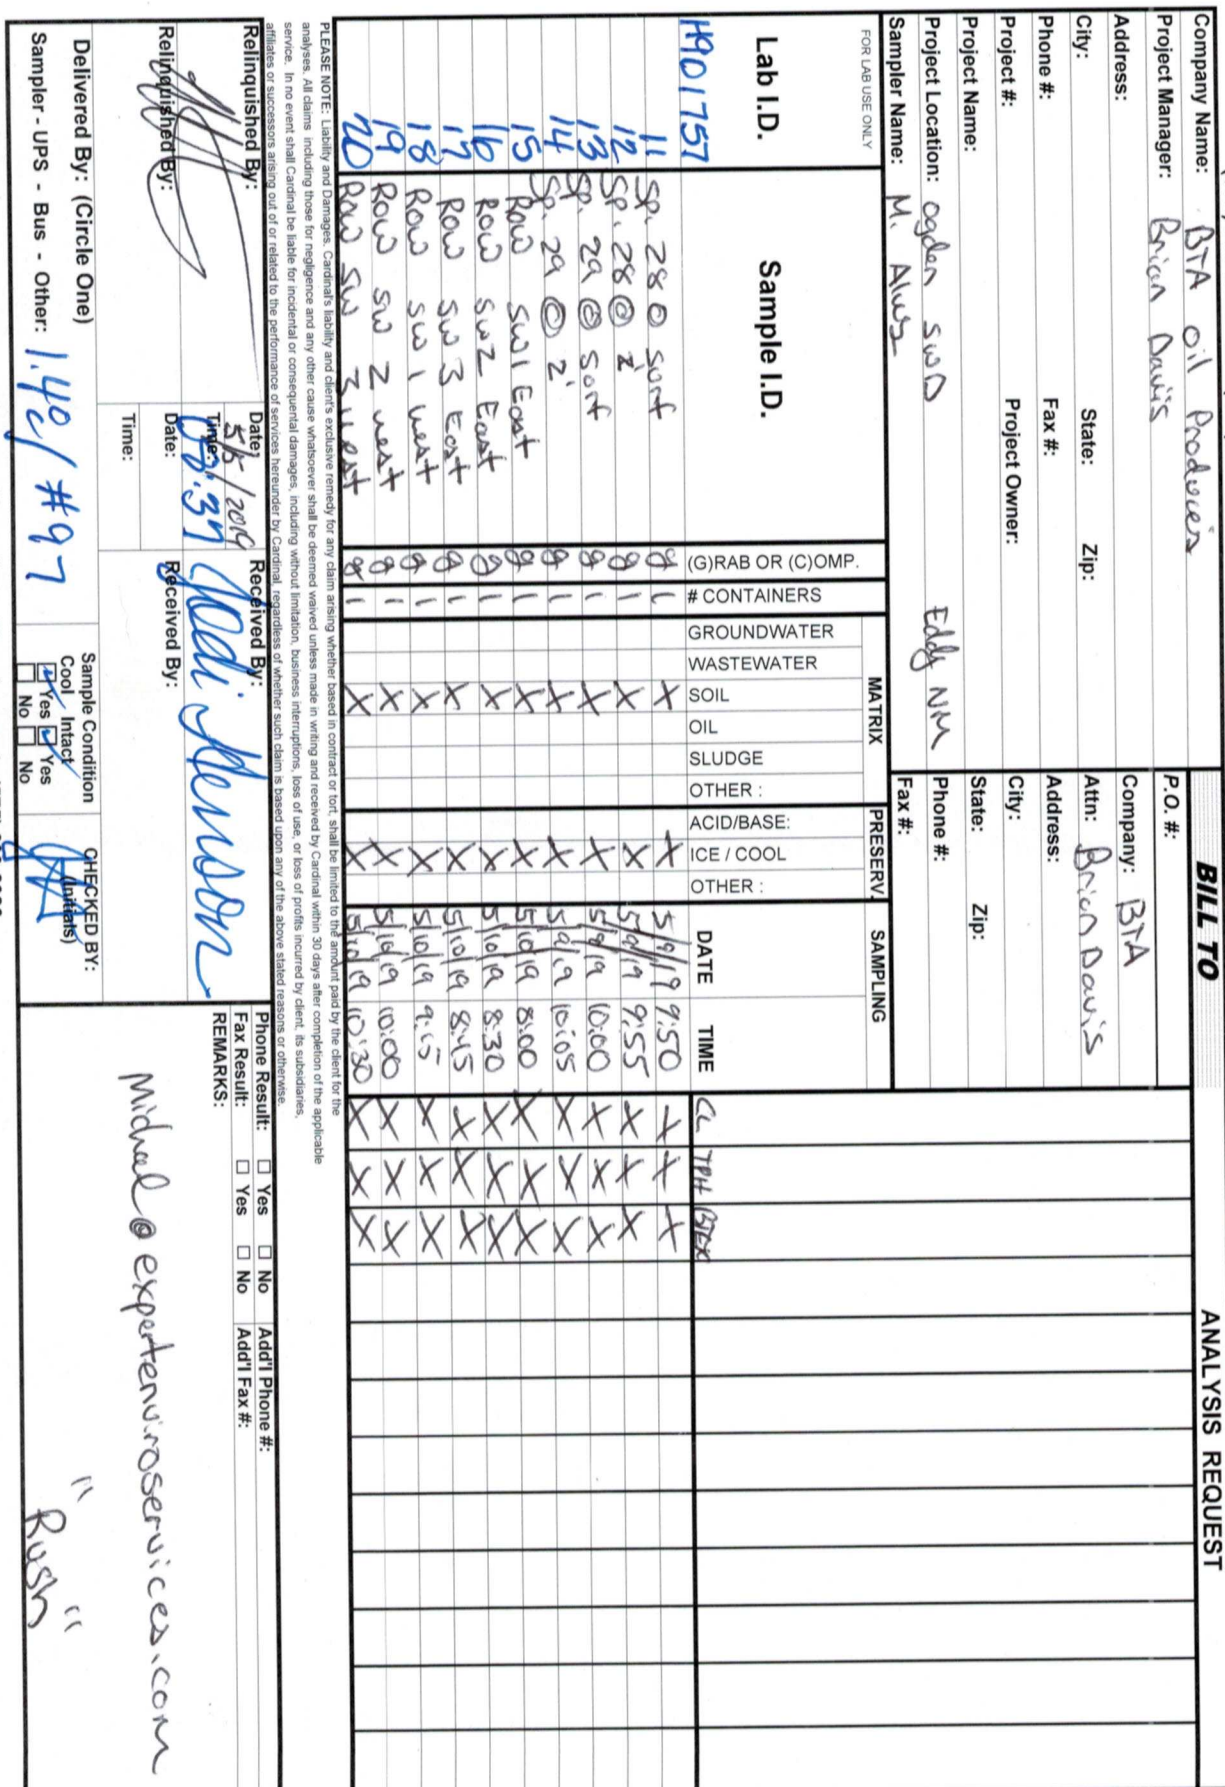 Company Name: BTA Oil Producers
Project Manager: Brian Davis
Address:
City: State: Zip:
Phone #: Fax #:
Project #: Project Owner:
Project Name:
Project Location: Ogden SWD Eddy NM
Sampler Name: M. Alves
BILL TO
P.O. #:
Company: BTA
Attn: Brian Davis
Address:
City:
State: Zip:
Phone #:
Fax #:
ANALYSIS REQUEST
FOR LAB USE ONLY
Lab I.D.
H901757
Sample I.D.
(G)RAB OR (C)OMP.
# CONTAINERS
MATRIX
GROUNDWATER
WASTEWATER
SOIL
OIL
SLUDGE
OTHER :
PRESERV.
ACID/BASE:
ICE / COOL
OTHER :
SAMPLING
DATE TIME
CL TPH BTEX
11 Sp. 28 @ surf g 1 X X 5/9/19 9:50 X X X
12 Sp. 28 @ 2' g 1 X X 5/9/19 9:55 X X X
13 Sp. 29 @ surf g 1 X X 5/9/19 10:00 X X X
14 Sp. 29 @ 2' g 1 X X 5/9/19 10:05 X X X
15 Row SW1 East g 1 X X 5/10/19 8:00 X X X
16 Row SW2 East g 1 X X 5/10/19 8:30 X X X
17 Row SW 3 East g 1 X X 5/10/19 8:45 X X X
18 Row SW 1 west g 1 X X 5/10/19 9:15 X X X
19 Row SW 2 west g 1 X X 5/10/19 10:00 X X X
20 Row SW 3 west g 1 X X 5/10/19 10:30 X X X
PLEASE NOTE: Liability and Damages. Cardinal's liability and client's exclusive remedy for any claim arising whether based in contract or tort, shall be limited to the amount paid by the client for the
analyses. All claims including those for negligence and any other cause whatsoever shall be deemed waived unless made in writing and received by Cardinal within 30 days after completion of the applicable
service. In no event shall Cardinal be liable for incidental or consequental damages, including without limitation, business interruptions, loss of use, or loss of profits incurred by client, its subsidiaries,
affiliates or successors arising out of or related to the performance of services hereunder by Cardinal, regardless of whether such claim is based upon any of the above stated reasons or otherwise.
Relinquished By:
Date: /2019
Time: :37
Received By:
Jodi Henson
Relinquished By:
Date:
Time:
Received By:
Delivered By: (Circle One)
Sampler - UPS - Bus - Other: 1.4c/ #97
Sample Condition
Cool Intact
Yes Yes
No No
CHECKED BY:
(Initials)
Phone Result: Yes No Add'l Phone #:
Fax Result: Yes No Add'l Fax #:
REMARKS:
Michael@expertenviroservices.com
"Rush"